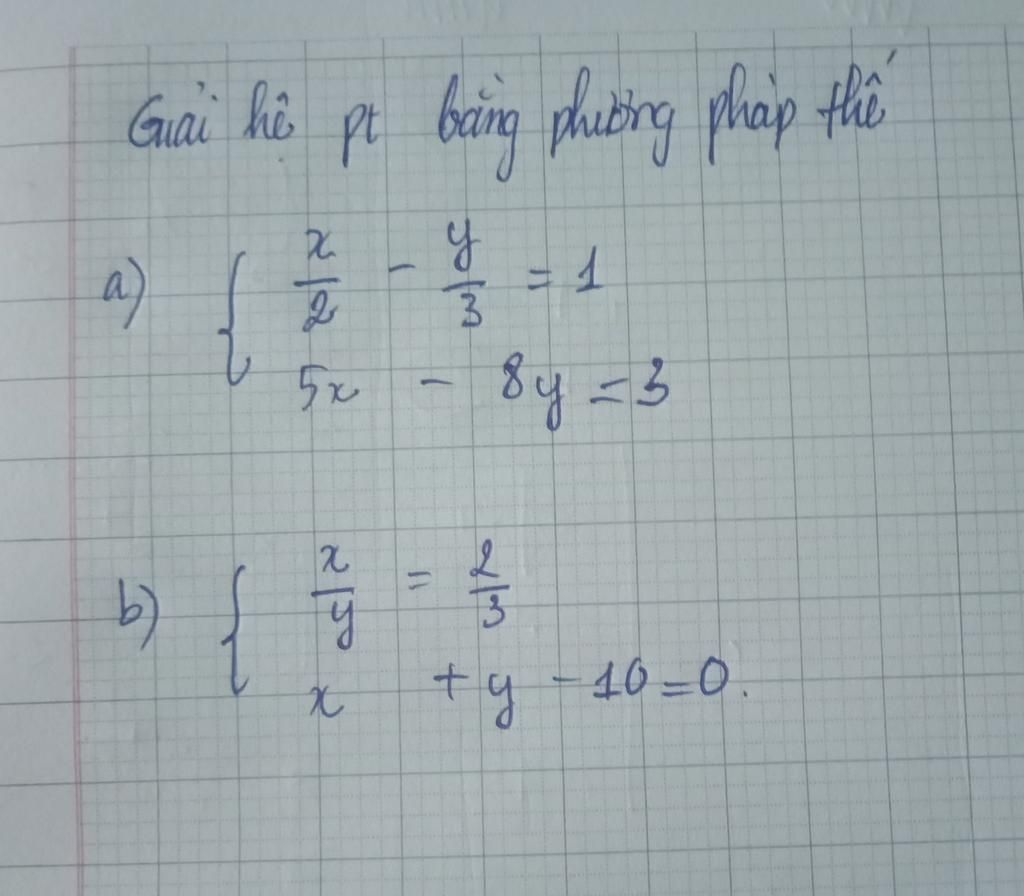 Giải hê pt bằng phương pháp thế
a) { x/2 - y/3 = 1
5x - 8y = 3
b) { x/y = 2/3
x + y - 10 = 0.